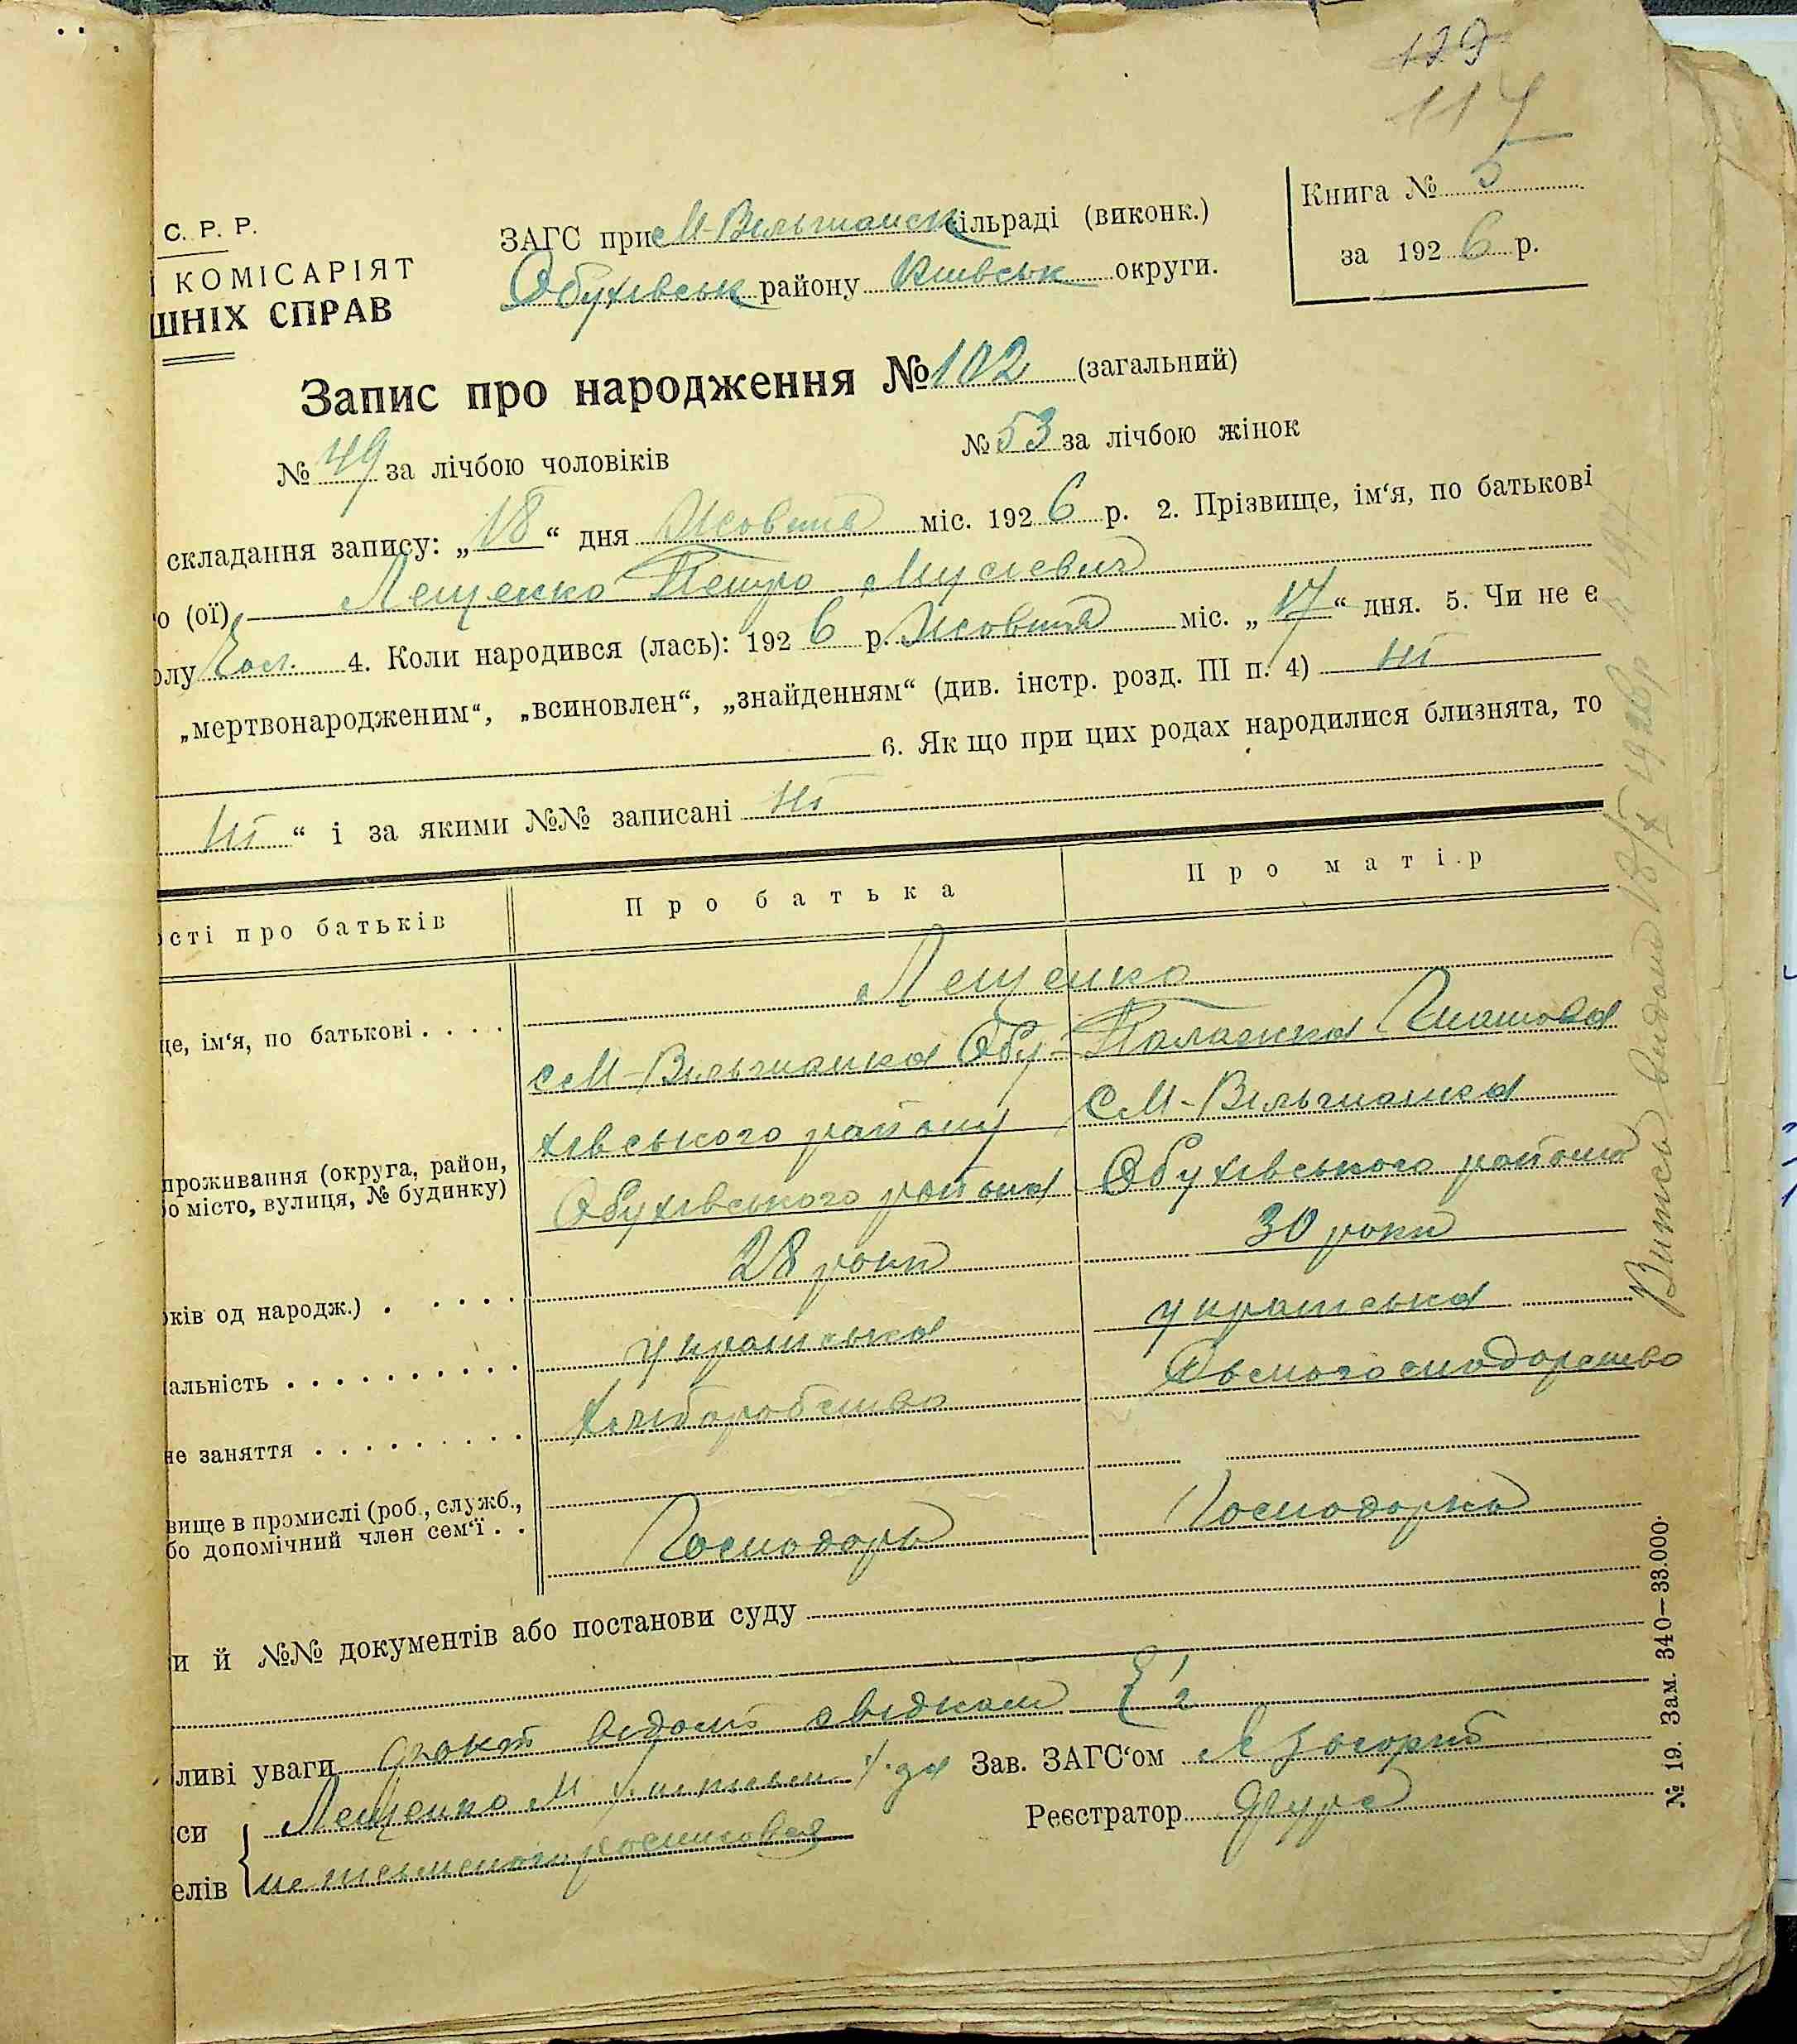 129
117
С. Р. Р.
КОМІСАРІЯТ
ШНІХ СПРАВ
ЗАГС при М-Вільшанск сільраді (виконк.)
Обухівськ району Київськ округи.
Книга № 5
за 1926 р.
Запис про народження № 102 (загальний)
№ 49 за лічбою чоловіків № 53 за лічбою жінок
складання запису: „18“ дня Жовтня міс. 1926 р. 2. Прізвище, ім‘я, по батькові
о (ої) Лещенко Петро Мусієвич
олу Чол. 4. Коли народився (лась): 1926 р. Жовтня міс. „17“ дня. 5. Чи не є
„мертвонародженим“, „всиновлен“, „знайденням“ (див. інстр. розд. III п. 4) ні
6. Як що при цих родах народилися близнята, то
ні “ і за якими №№ записані ні
ості про батьків Про батька Про матір
Лещенко
це, ім‘я, по батькові . . . .
с М-Вільшанка Обу- Палажка Гнатова
хівського району с М-Вільшанка
проживання (округа, район,
о місто, вулиця, № будинку)
Обухівського района Обухівського района
28 роки 30 роки
ків од народж.) . . . . .
українська українська
альність . . . . . . . . . .
Хліборобство Домогосподарство
не заняття . . . . . . . . .
вище в промислі (роб., служб.,
бо допомічний член сем‘ї . .
Господарь Господарка
и й №№ документів або постанови суду
ливі уваги
Зав. ЗАГС‘ом
си Лещенко М
елів
Реєстратор
№ 19. Зам. 340—33.000.
Виписъ видано 18/X 1926р